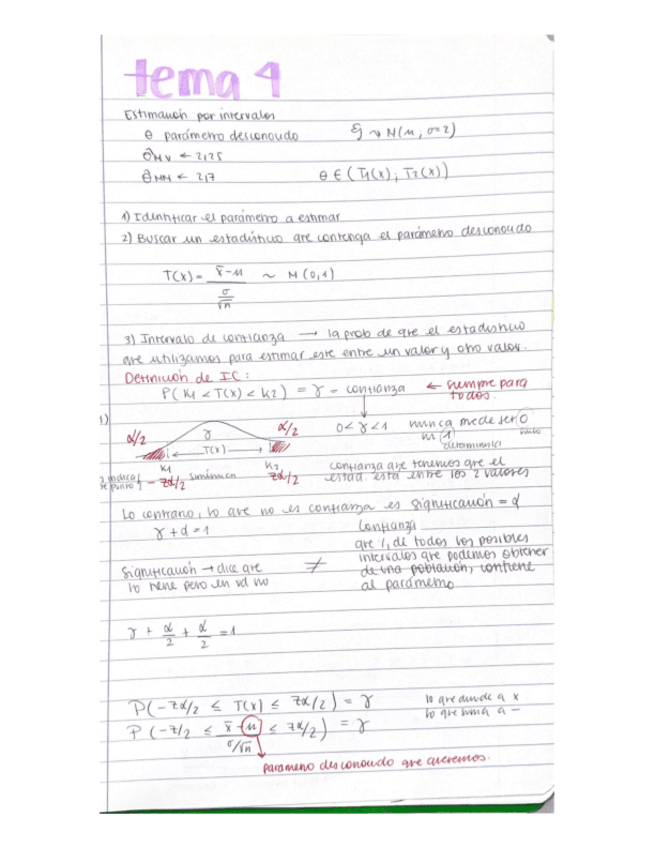 tema 4
Estimación por intervalos
θ parámetro desconocido ξ ↝ N(μ, σ=2)
θ̂MV ← 2,25
θ̂MM ← 2,7 θ ∈ (T1(x), T2(x))
1) Identificar el parámetro a estimar
2) Buscar un estadístico que contenga el parámetro desconocido
T(x) = (x̄-μ) / (σ/√n) ~ N(0,1)
3) Intervalo de confianza → la prob de que el estadístico
que utilizamos para estimar este entre un valor y otro valor.
Definición de IC:
P(K1 < T(x) < K2) = γ = confianza ← siempre para
todos.
1)
α/2 γ α/2 0 < γ < 1 nunca puede ser 0
T(x) ni 1
determinista
K1 K2 confianza que tenemos que el
-zα/2 simétrica zα/2 estad. está entre los 2 valores
Lo contrario, lo que no es confianza es significación = α
γ + α = 1 Confianza
que % de todos los posibles
intervalos que podemos obtener
Significación → dice que ≠ de una población, contiene
lo tiene pero en vd no al parámetro
γ + α/2 + α/2 = 1
P(-zα/2 ≤ T(x) ≤ zα/2) = γ lo que divide a x
P(-z/2 ≤ (x̄-μ) / (σ/√n) ≤ zα/2) = γ lo que suma a -
parámetro desconocido que queremos.